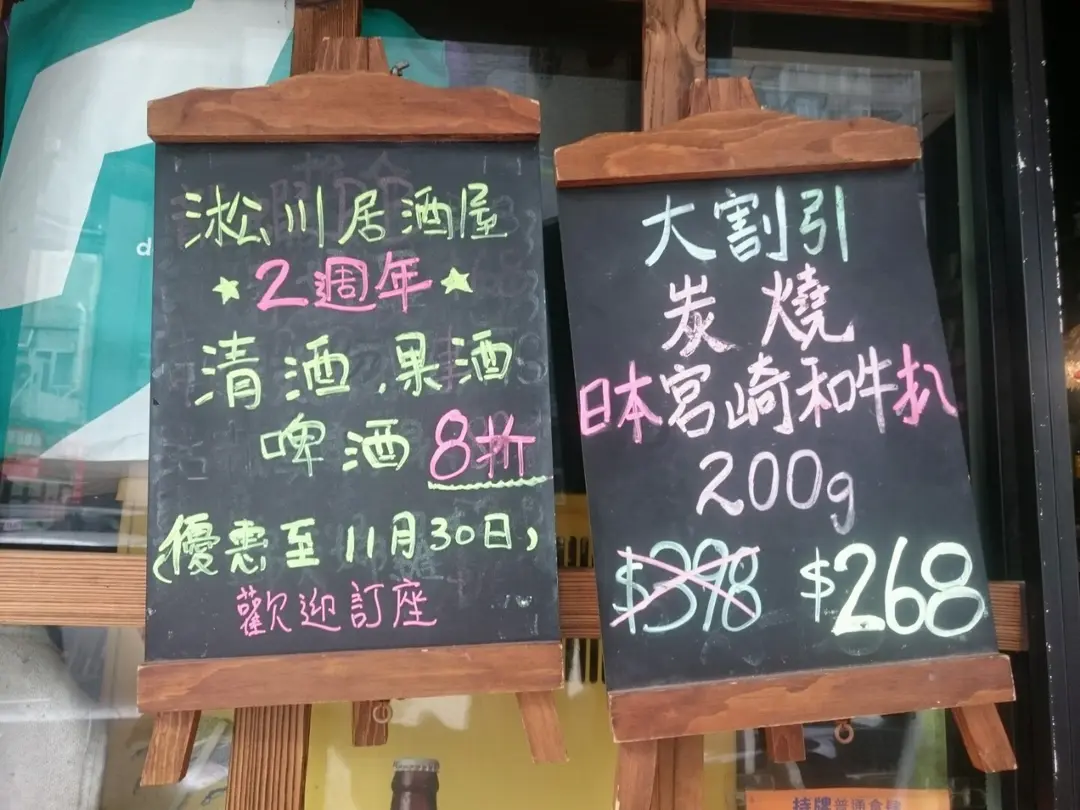 淞川居酒屋
★2週年★
清酒,果酒
啤酒 8折
(優惠至11月30日)
歡迎訂座
大割引
炭燒
日本宮崎和牛扒
200g
$398 $268
持牌普通食肆